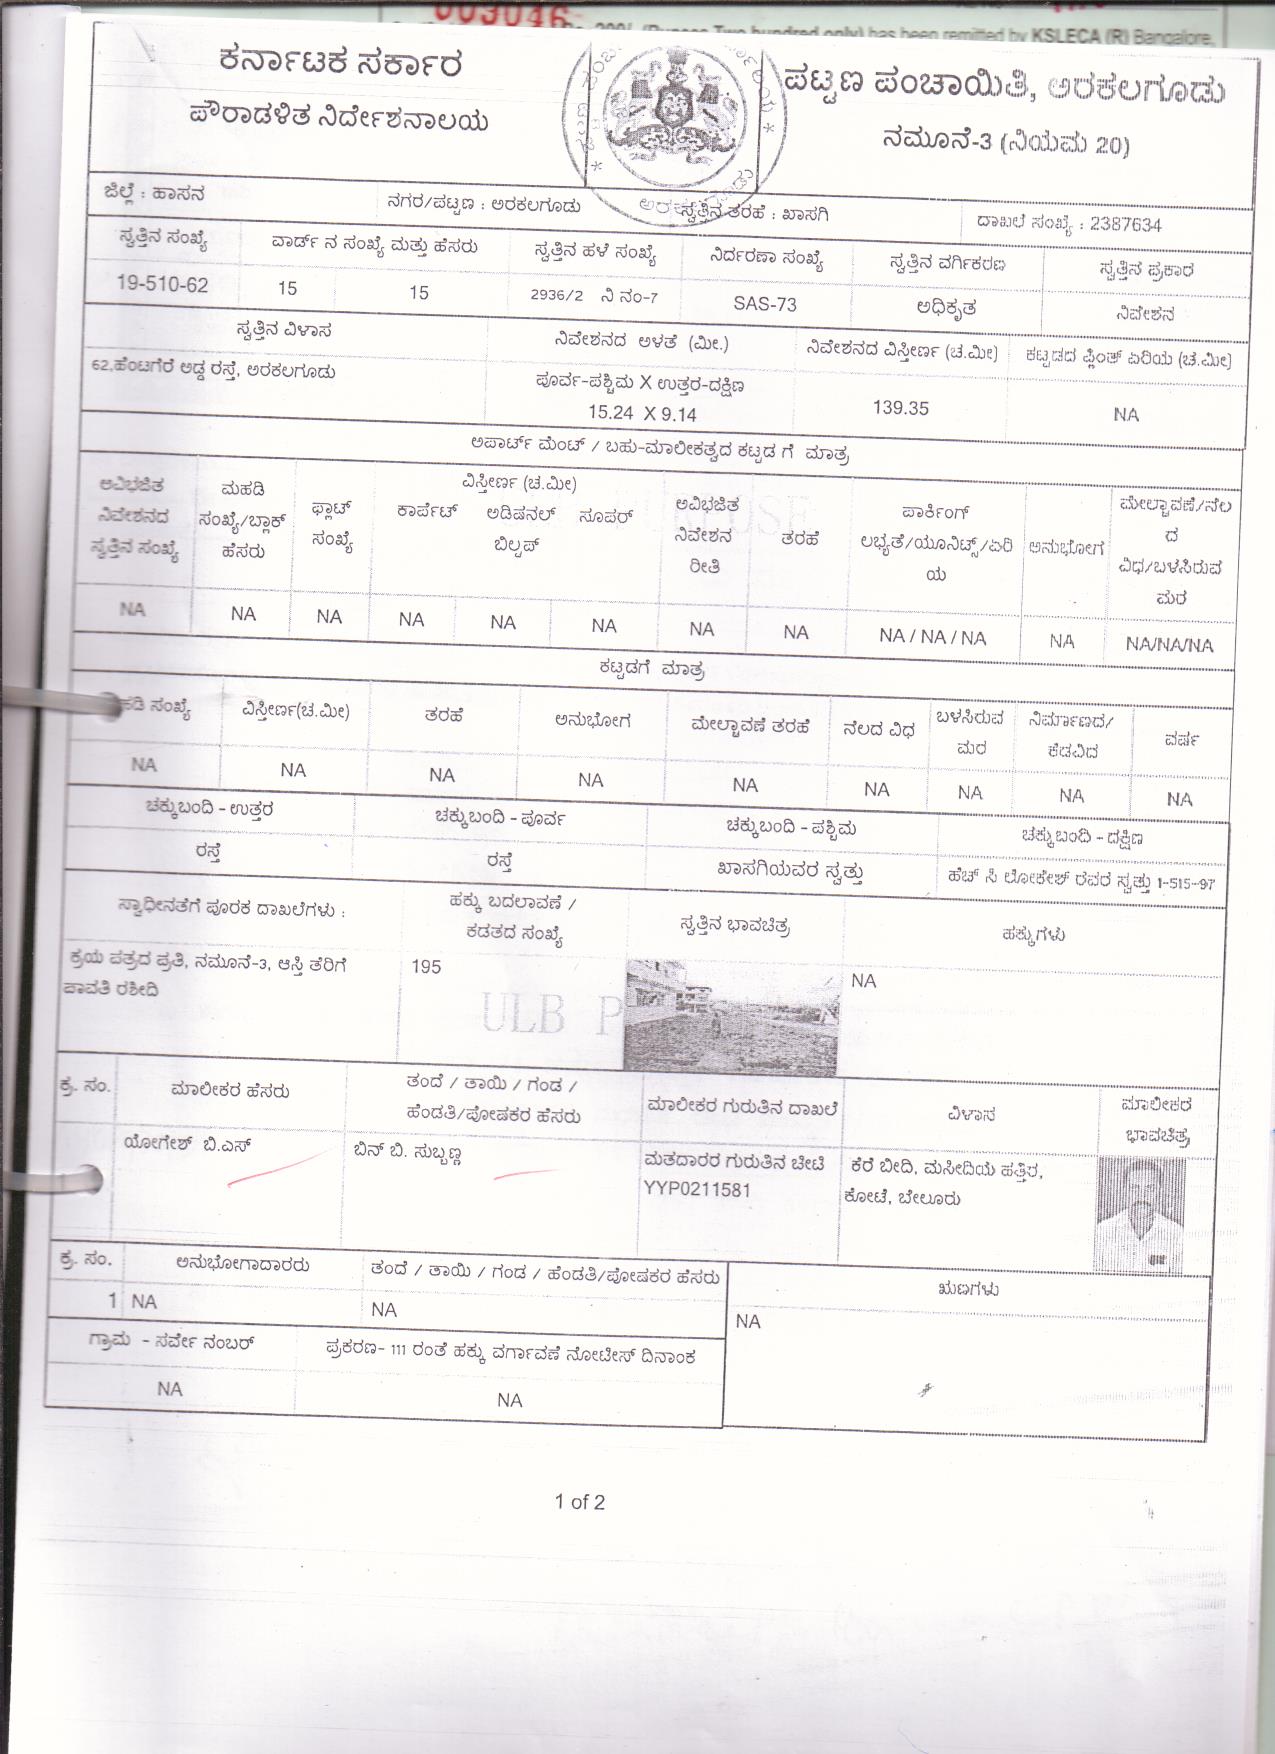 003046
(Rupees Two hundred only) has been remitted by KSLECA (R) Bangalore,
ಕರ್ನಾಟಕ ಸರ್ಕಾರ
ಪೌರಾಡಳಿತ ನಿರ್ದೇಶನಾಲಯ
ಪಟ್ಟಣ ಪಂಚಾಯಿತಿ, ಅರಕಲಗೂಡು
ನಮೂನೆ-3 (ನಿಯಮ 20)
ಜಿಲ್ಲೆ : ಹಾಸನ ನಗರ/ಪಟ್ಟಣ : ಅರಕಲಗೂಡು ಸ್ವತ್ತಿನ ತರಹೆ : ಖಾಸಗಿ ದಾಖಲೆ ಸಂಖ್ಯೆ : 2387634
ಸ್ವತ್ತಿನ ಸಂಖ್ಯೆ ವಾರ್ಡ್ ನ ಸಂಖ್ಯೆ ಮತ್ತು ಹೆಸರು ಸ್ವತ್ತಿನ ಹಳೆ ಸಂಖ್ಯೆ ನಿರ್ದರಣಾ ಸಂಖ್ಯೆ ಸ್ವತ್ತಿನ ವರ್ಗಿಕರಣ ಸ್ವತ್ತಿನ ಪ್ರಕಾರ
19-510-62 15 15 2936/2 ನಿ ನಂ-7 SAS-73 ಅಧಿಕೃತ ನಿವೇಶನ
ಸ್ವತ್ತಿನ ವಿಳಾಸ ನಿವೇಶನದ ಅಳತೆ (ಮೀ.) ನಿವೇಶನದ ವಿಸ್ತೀರ್ಣ (ಚ.ಮೀ) ಕಟ್ಟಡದ ಪ್ಲಿಂತ್ ಏರಿಯ (ಚ.ಮೀ)
62,ಹೆಂಟಗೆರೆ ಅಡ್ಡ ರಸ್ತೆ, ಅರಕಲಗೂಡು ಪೂರ್ವ-ಪಶ್ಚಿಮ X ಉತ್ತರ-ದಕ್ಷಿಣ
15.24 X 9.14 139.35 NA
ಅಪಾರ್ಟ್ ಮೆಂಟ್ / ಬಹು-ಮಾಲೀಕತ್ವದ ಕಟ್ಟಡ ಗೆ ಮಾತ್ರ
ಅವಿಭಜಿತ ಮಹಡಿ ಫ್ಲಾಟ್ ವಿಸ್ತೀರ್ಣ (ಚ.ಮೀ) ಅವಿಭಜಿತ ಪಾರ್ಕಿಂಗ್ ಮೇಲ್ಚಾವಣೆ/ನೆಲ
ನಿವೇಶನದ ಸಂಖ್ಯೆ/ಬ್ಲಾಕ್ ಸಂಖ್ಯೆ ಕಾರ್ಪೆಟ್ ಅಡಿಷನಲ್ ಸೂಪರ್ ನಿವೇಶನ ತರಹೆ ಲಭ್ಯತೆ/ಯೂನಿಟ್ಸ್/ಏರಿ ಅನುಭೋಗ ದ
ಸ್ವತ್ತಿನ ಸಂಖ್ಯೆ ಹೆಸರು ಬಿಲ್ಟಪ್ ರೀತಿ ಯ ವಿಧ/ಬಳಸಿರುವ
ಮರ
NA NA NA NA NA NA NA NA NA / NA / NA NA NA/NA/NA
ಕಟ್ಟಡಗೆ ಮಾತ್ರ
ಹಡಿ ಸಂಖ್ಯೆ ವಿಸ್ತೀರ್ಣ(ಚ.ಮೀ) ತರಹೆ ಅನುಭೋಗ ಮೇಲ್ಚಾವಣೆ ತರಹೆ ನೆಲದ ವಿಧ ಬಳಸಿರುವ ನಿರ್ಮಾಣದ/ ವರ್ಷ
ಮರ ಕೆಡವಿದ
NA NA NA NA NA NA NA NA NA
ಚಕ್ಕುಬಂದಿ - ಉತ್ತರ ಚಕ್ಕುಬಂದಿ - ಪೂರ್ವ ಚಕ್ಕುಬಂದಿ - ಪಶ್ಚಿಮ ಚಕ್ಕುಬಂದಿ - ದಕ್ಷಿಣ
ರಸ್ತೆ ರಸ್ತೆ ಖಾಸಗಿಯವರ ಸ್ವತ್ತು ಹೆಚ್ ಸಿ ಲೋಕೇಶ್ ರವರ ಸ್ವತ್ತು 1-515-97
ಸ್ವಾಧೀನತೆಗೆ ಪೂರಕ ದಾಖಲೆಗಳು : ಹಕ್ಕು ಬದಲಾವಣೆ / ಸ್ವತ್ತಿನ ಭಾವಚಿತ್ರ ಹಕ್ಕುಗಳು
ಕಡತದ ಸಂಖ್ಯೆ
ಕ್ರಯ ಪತ್ರದ ಪ್ರತಿ, ನಮೂನೆ-3, ಆಸ್ತಿ ತೆರಿಗೆ 195 NA
ಪಾವತಿ ರಶೀದಿ
ULB P
ಕ್ರ. ಸಂ. ಮಾಲೀಕರ ಹೆಸರು ತಂದೆ / ತಾಯಿ / ಗಂಡ / ಮಾಲೀಕರ ಗುರುತಿನ ದಾಖಲೆ ವಿಳಾಸ ಮಾಲೀಕರ
ಹೆಂಡತಿ/ಪೋಷಕರ ಹೆಸರು ಭಾವಚಿತ್ರ
ಯೋಗೇಶ್ ಬಿ.ಎಸ್ ಬಿನ್ ಬಿ. ಸುಬ್ಬಣ್ಣ ಮತದಾರರ ಗುರುತಿನ ಚೀಟಿ ಕೆರೆ ಬೀದಿ, ಮಸೀದಿಯ ಹತ್ತಿರ,
YYP0211581 ಕೋಟೆ, ಬೇಲೂರು
ಕ್ರ. ಸಂ. ಅನುಭೋಗಾದಾರರು ತಂದೆ / ತಾಯಿ / ಗಂಡ / ಹೆಂಡತಿ/ಪೋಷಕರ ಹೆಸರು ಋಣಗಳು
1 NA NA NA
ಗ್ರಾಮ - ಸರ್ವೇ ನಂಬರ್ ಪ್ರಕರಣ- 111 ರಂತೆ ಹಕ್ಕು ವರ್ಗಾವಣೆ ನೋಟೀಸ್ ದಿನಾಂಕ
NA NA
1 of 2